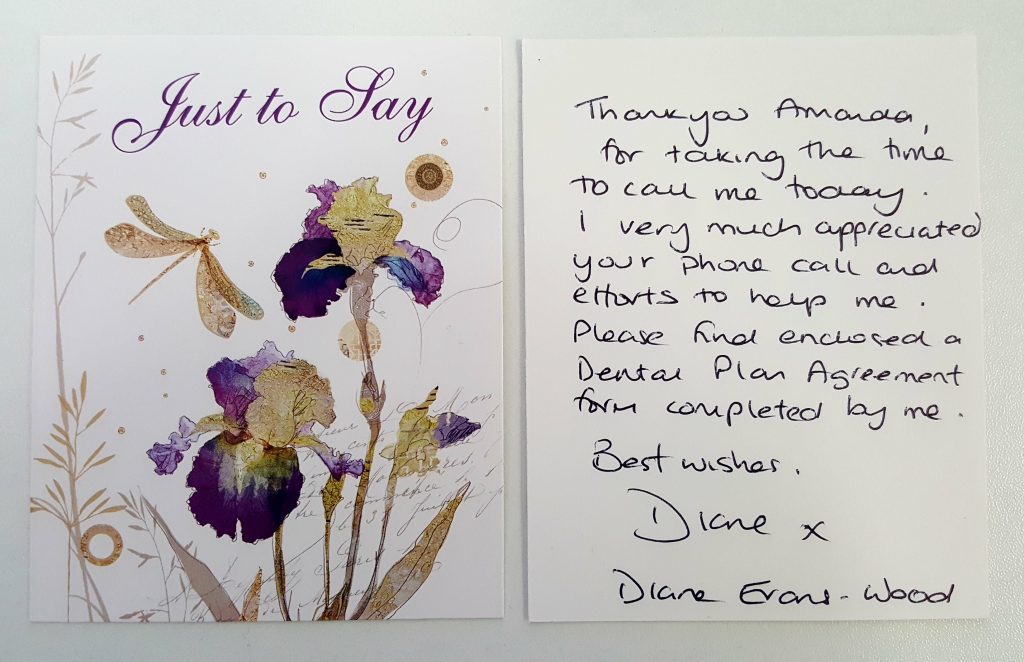 Just to Say
Thankyou Amanda,
for taking the time
to call me today.
I very much appreciated
your phone call and
efforts to help me.
Please find enclosed a
Dental Plan Agreement
form completed by me.
Best wishes,
Diane x
Diane Evans-Wood